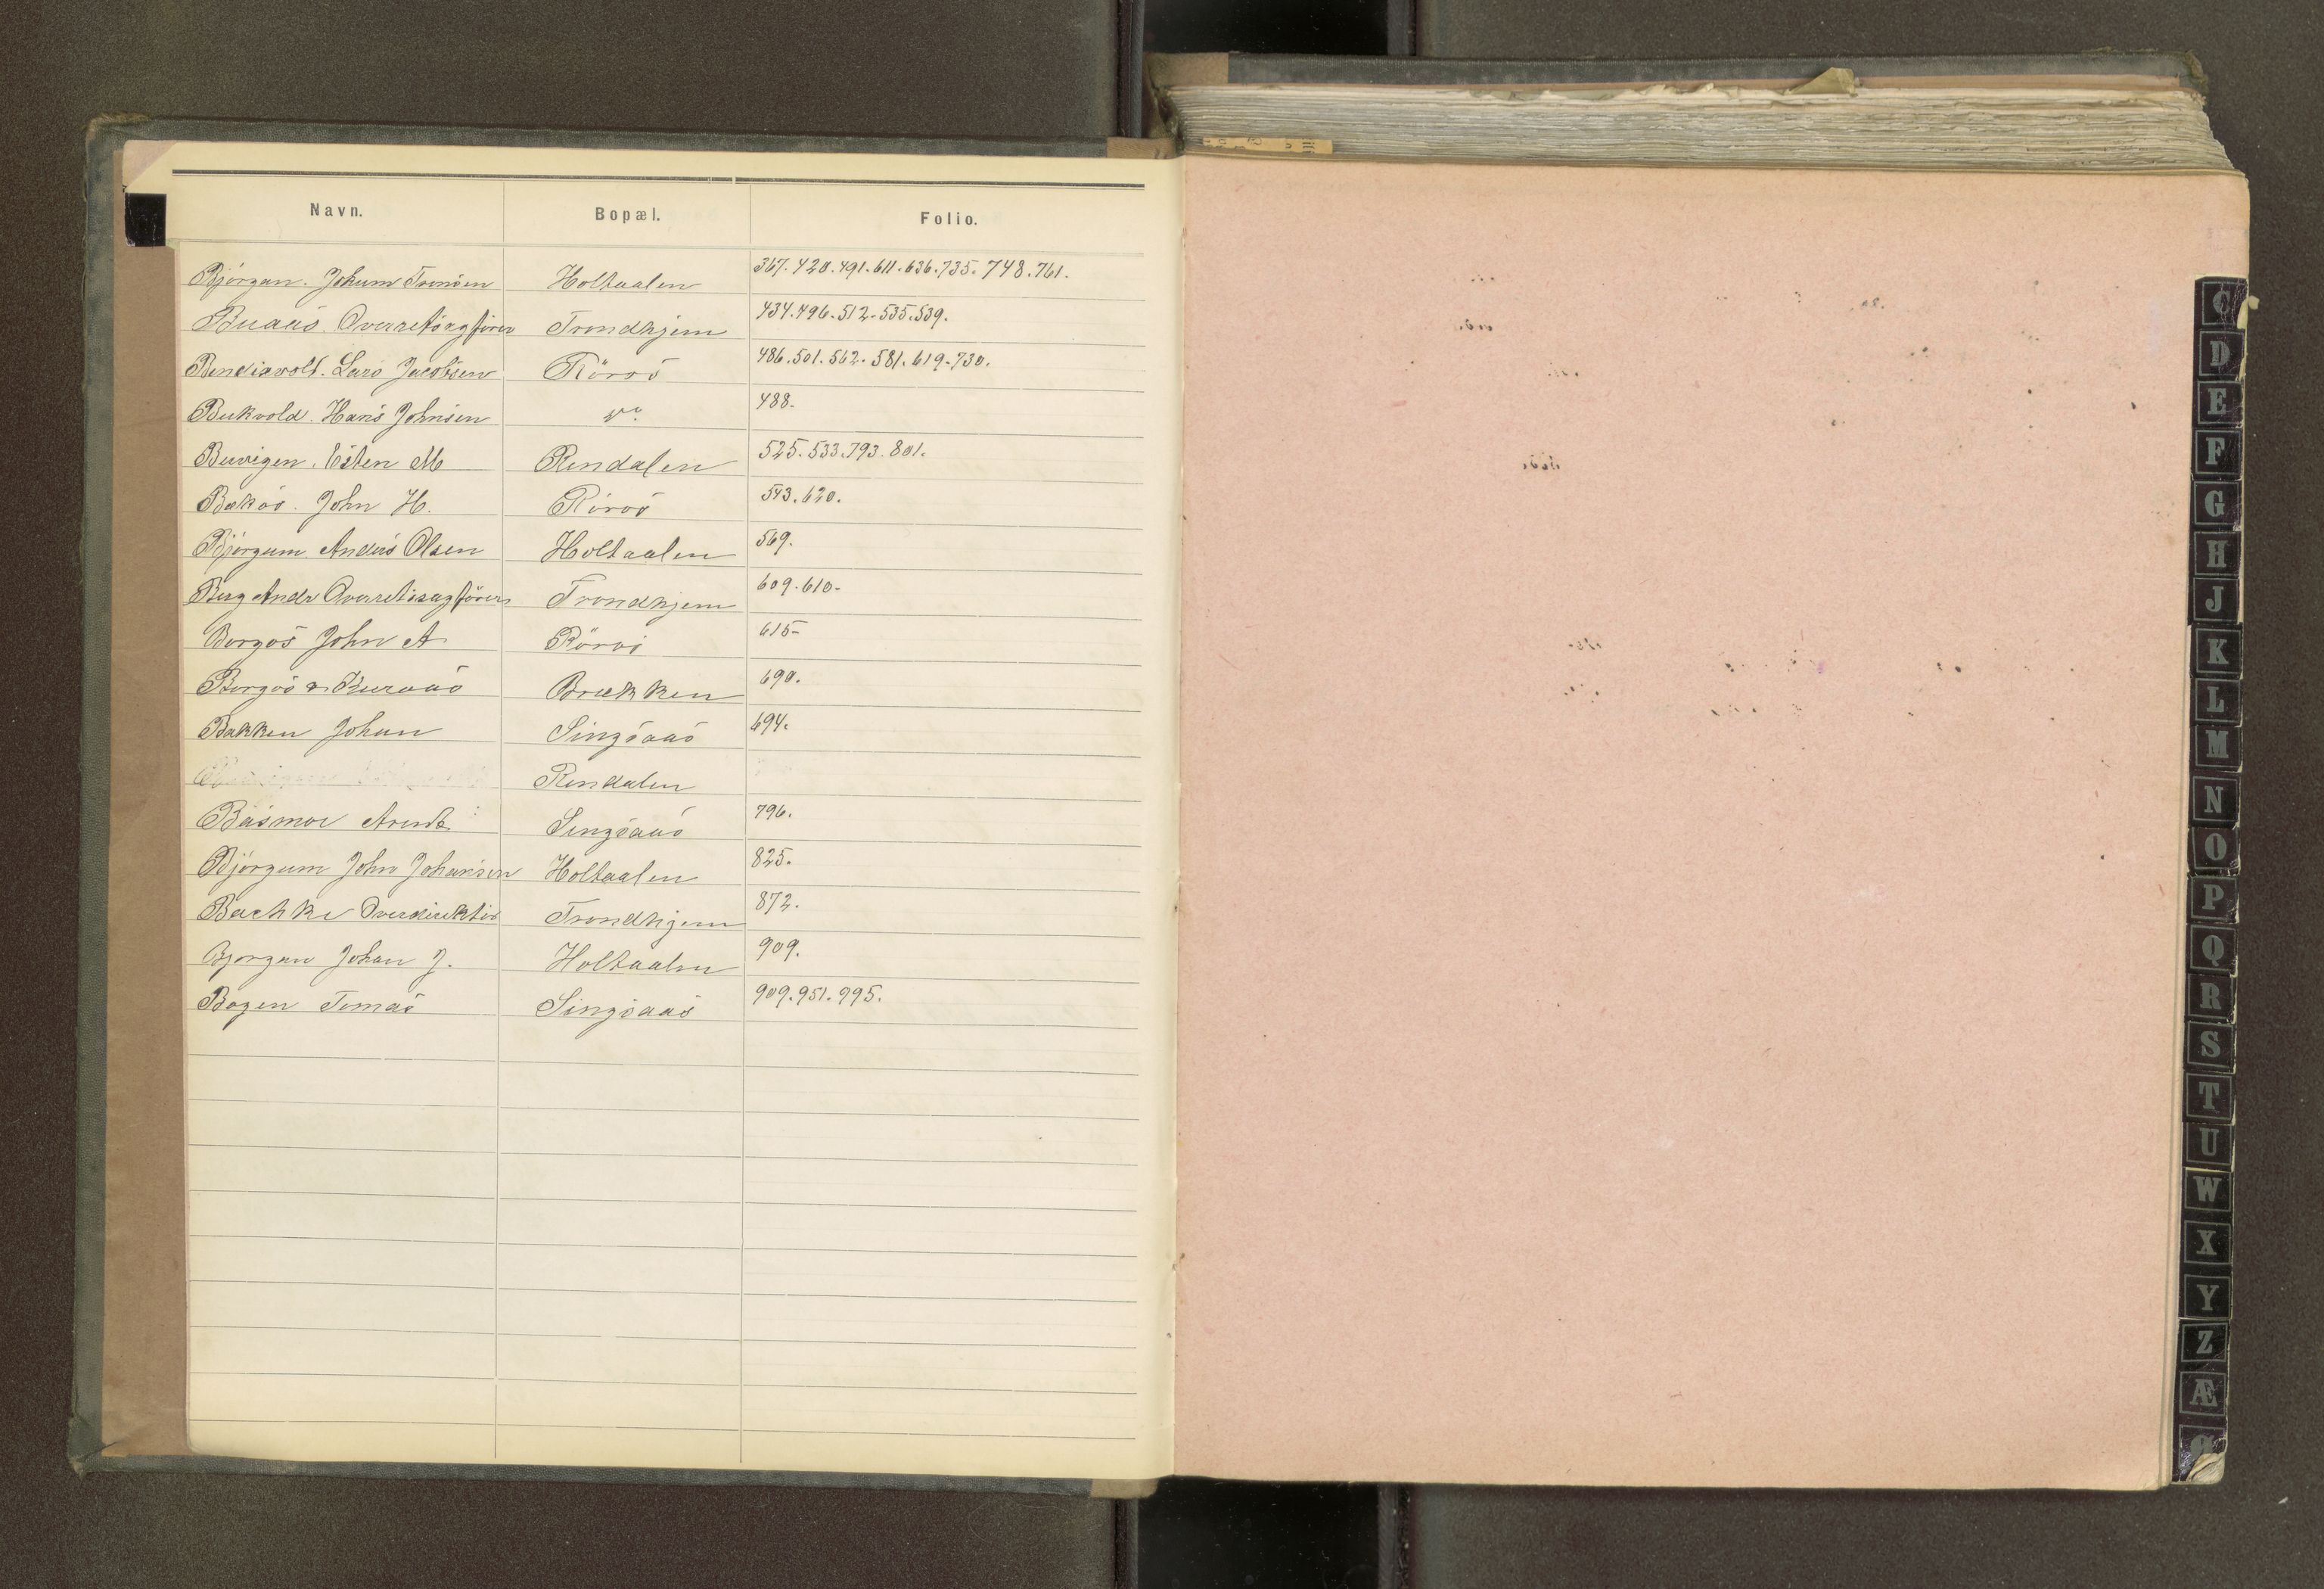 Navn. Bopæl. Folio.
Bjørgan. Johum Tronsen Holtaalen 367. 420. 491. 611. 636. 735. 748. 761.
Buaas. Overretssagfører Trondhjem 434. 496. 512. 535. 539.
Bendixvold. Lars Jacobsen Röros 486. 501. 562. 581. 619. 730.
Bukvold. Hans Johnsen do. 488.
Buvigen. Esten M Rendalen 525. 533. 793. 801.
Bekøs. John H. Röros 543. 620.
Bjørgum Anders Olsen Holtaalen 569.
Berg Andr Overretssagfører Trondhjem 609. 610.
Borgos John A Röros 615
Borgos & Kuraas Brækken 690.
Bakken Johan Singsaas 694.
Rendalen
Båsmoe Arendt Singsaas 796.
Bjørgum John Johansen Holtaalen 825.
Bachke Overdirektør Trondhjem 872.
Bjørgan Johan J. Holtaalen 909.
Bogen Tomas Singsaas 909. 951. 995.
C
D
E
F
G
H
J
K
L
M
N
O
P
Q
R
S
T
U
W
X
Y
Z
Æ
Ø